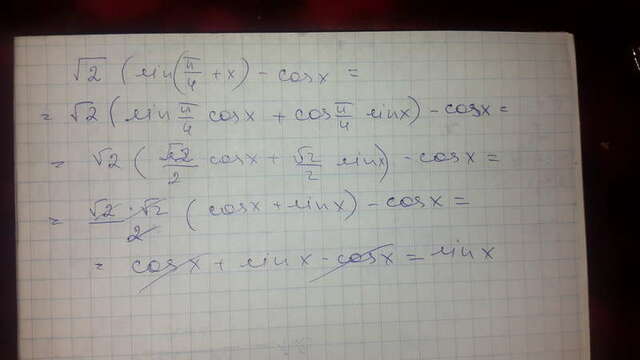 √2 (sin(π/4 + x) - cosx =
= √2 (sin π/4 cosx + cos π/4 sinx) - cosx =
= √2 (√2/2 cosx + √2/2 sinx) - cosx =
= √2·√2/2 (cosx + sinx) - cosx =
= cosx + sinx - cosx = sinx